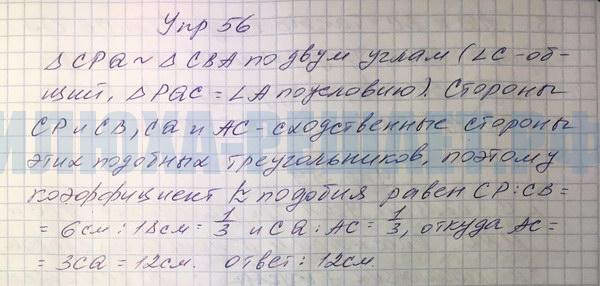 Упр 56
△ CPQ ~ △ CBA по двум углам (∠C - об-
щий, △PQC = ∠A по условию). Стороны
CP и CB, CQ и AC - сходственные стороны
этих подобных треугольников, поэтому
коэффициент k подобия равен CP : CB =
= 6см : 18см = 1/3 и CQ : AC = 1/3, откуда AC =
= 3CQ = 12см. ответ: 12см.